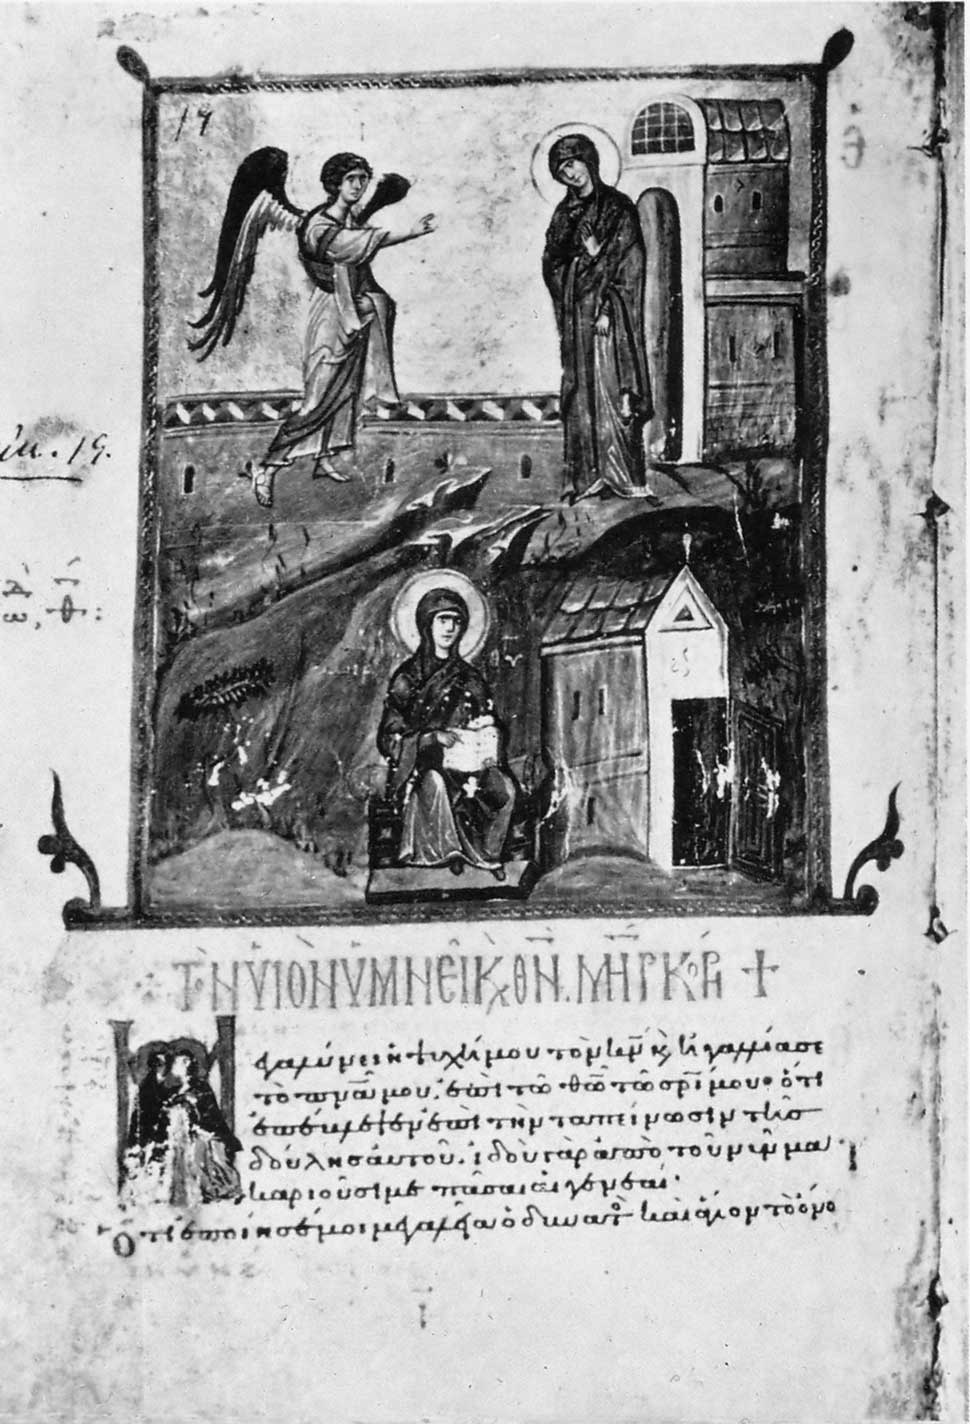 19
ιμ. 19.
ΤῸΝ ΥἹῸΝ ὙΜΝΕῖ Κ, ΘΝ̅. ΜΗ̅Ρ ΚΌΡΗ +
Μεγαλύνει ἡ ψυχή μου τὸν κν̅ κ, ἠγαλλίασε
τὸ πνᾶ μου, ἐπὶ τῶ θῶ τῶ σρῖ μου· ὅτι
ἐπέβλεψεν ἐπὶ τὴν ταπείνωσιν τῆς
δούλης αὐτοῦ. ἰδοὺ γὰρ ἀπὸ τοῦ νῦν μα
καριοῦσί με πᾶσαι αἱ γενεαί·
Ὅτι ἐποίησέ μοι μεγαλεῖα ὁ δυνατὸς καὶ ἅγιον τὸ ὄνο